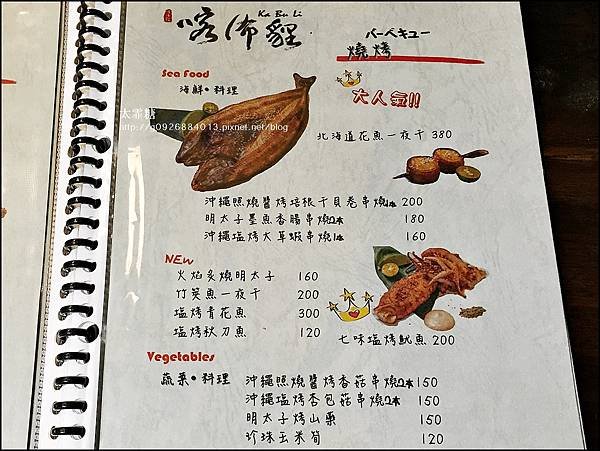 喀佈貍
Ka Bu Li
バーベキュー
燒烤
Sea Food
海鮮•料理
大人氣!!
太帝糖
http://q0926884013.pixnet.net/blog
北海道花魚一夜干 380
沖繩照燒醬烤培根干貝卷串燒1本 200
明太子墨魚香腸串燒2本 180
沖繩塩烤大草蝦串燒1本 160
NEw
火焰炙燒明太子 160
竹筴魚一夜干 200
塩烤青花魚 300
塩烤秋刀魚 120
七味塩烤魷魚 200
Vegetables
蔬菜•料理
沖繩照燒醬烤香菇串燒2本 150
沖繩塩烤杏包菇串燒2本 150
明太子烤山藥 150
珍珠玉米筍 120